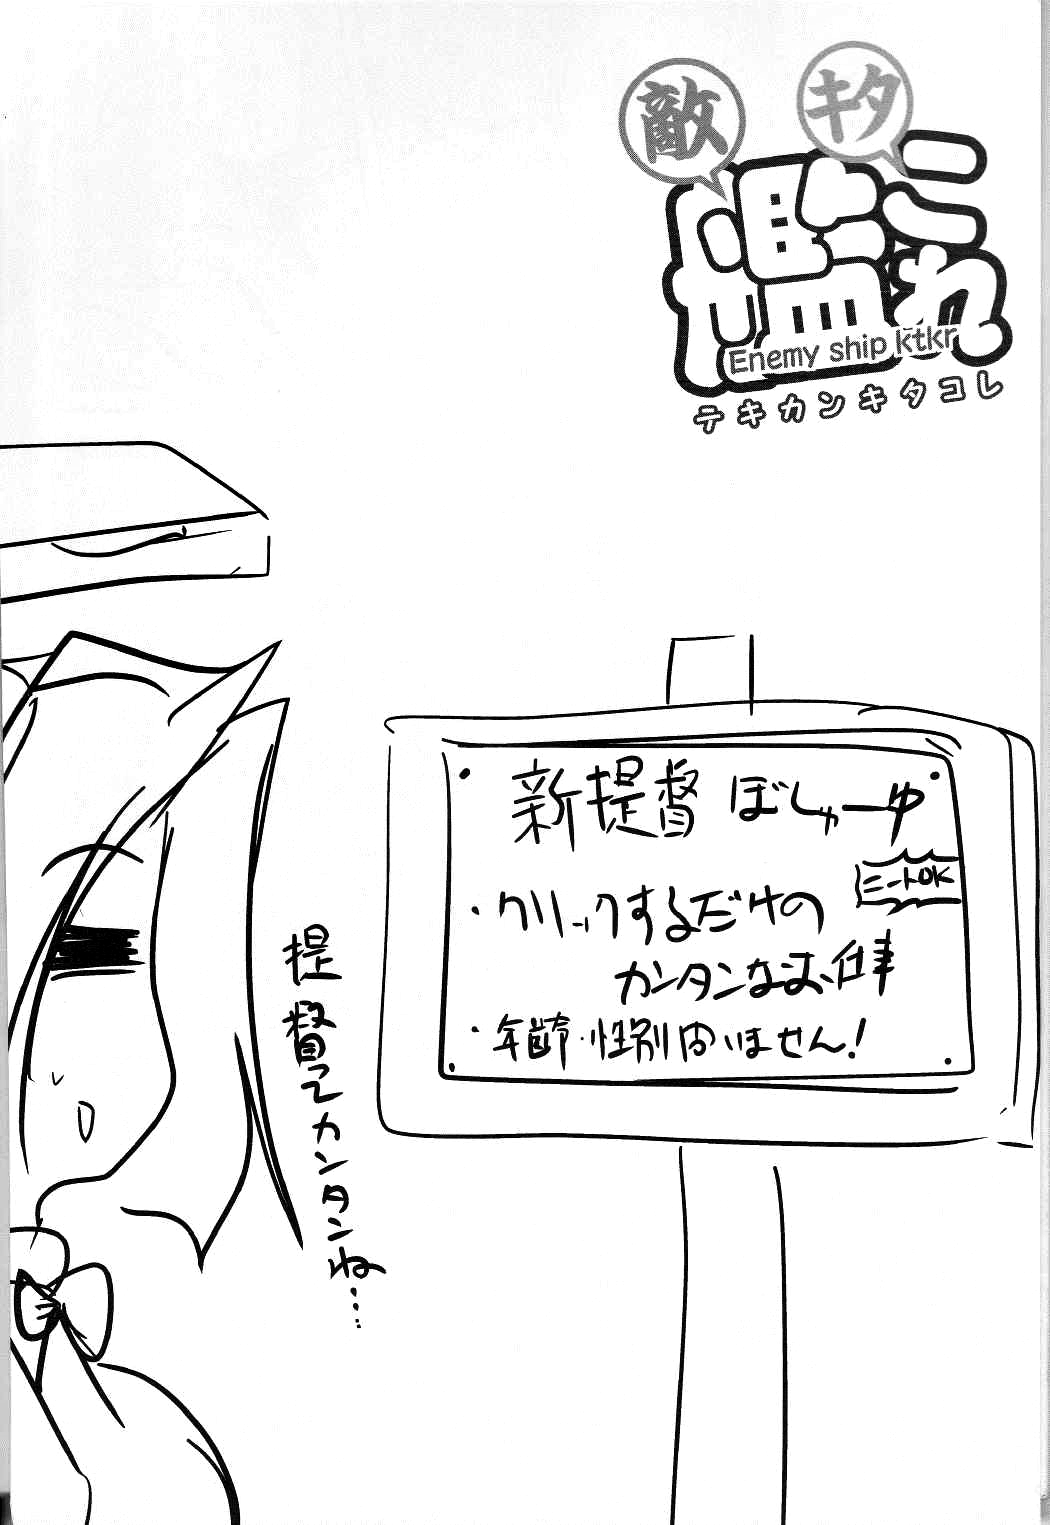 敵 キタ
艦これ
Enemy ship ktkr
テキカンキタコレ
新提督 ぼしゅーゆ
ニートOK
・クリックするだけの
カンタンなお仕事
・年齢・性別問いません!
提督てカンタンね…